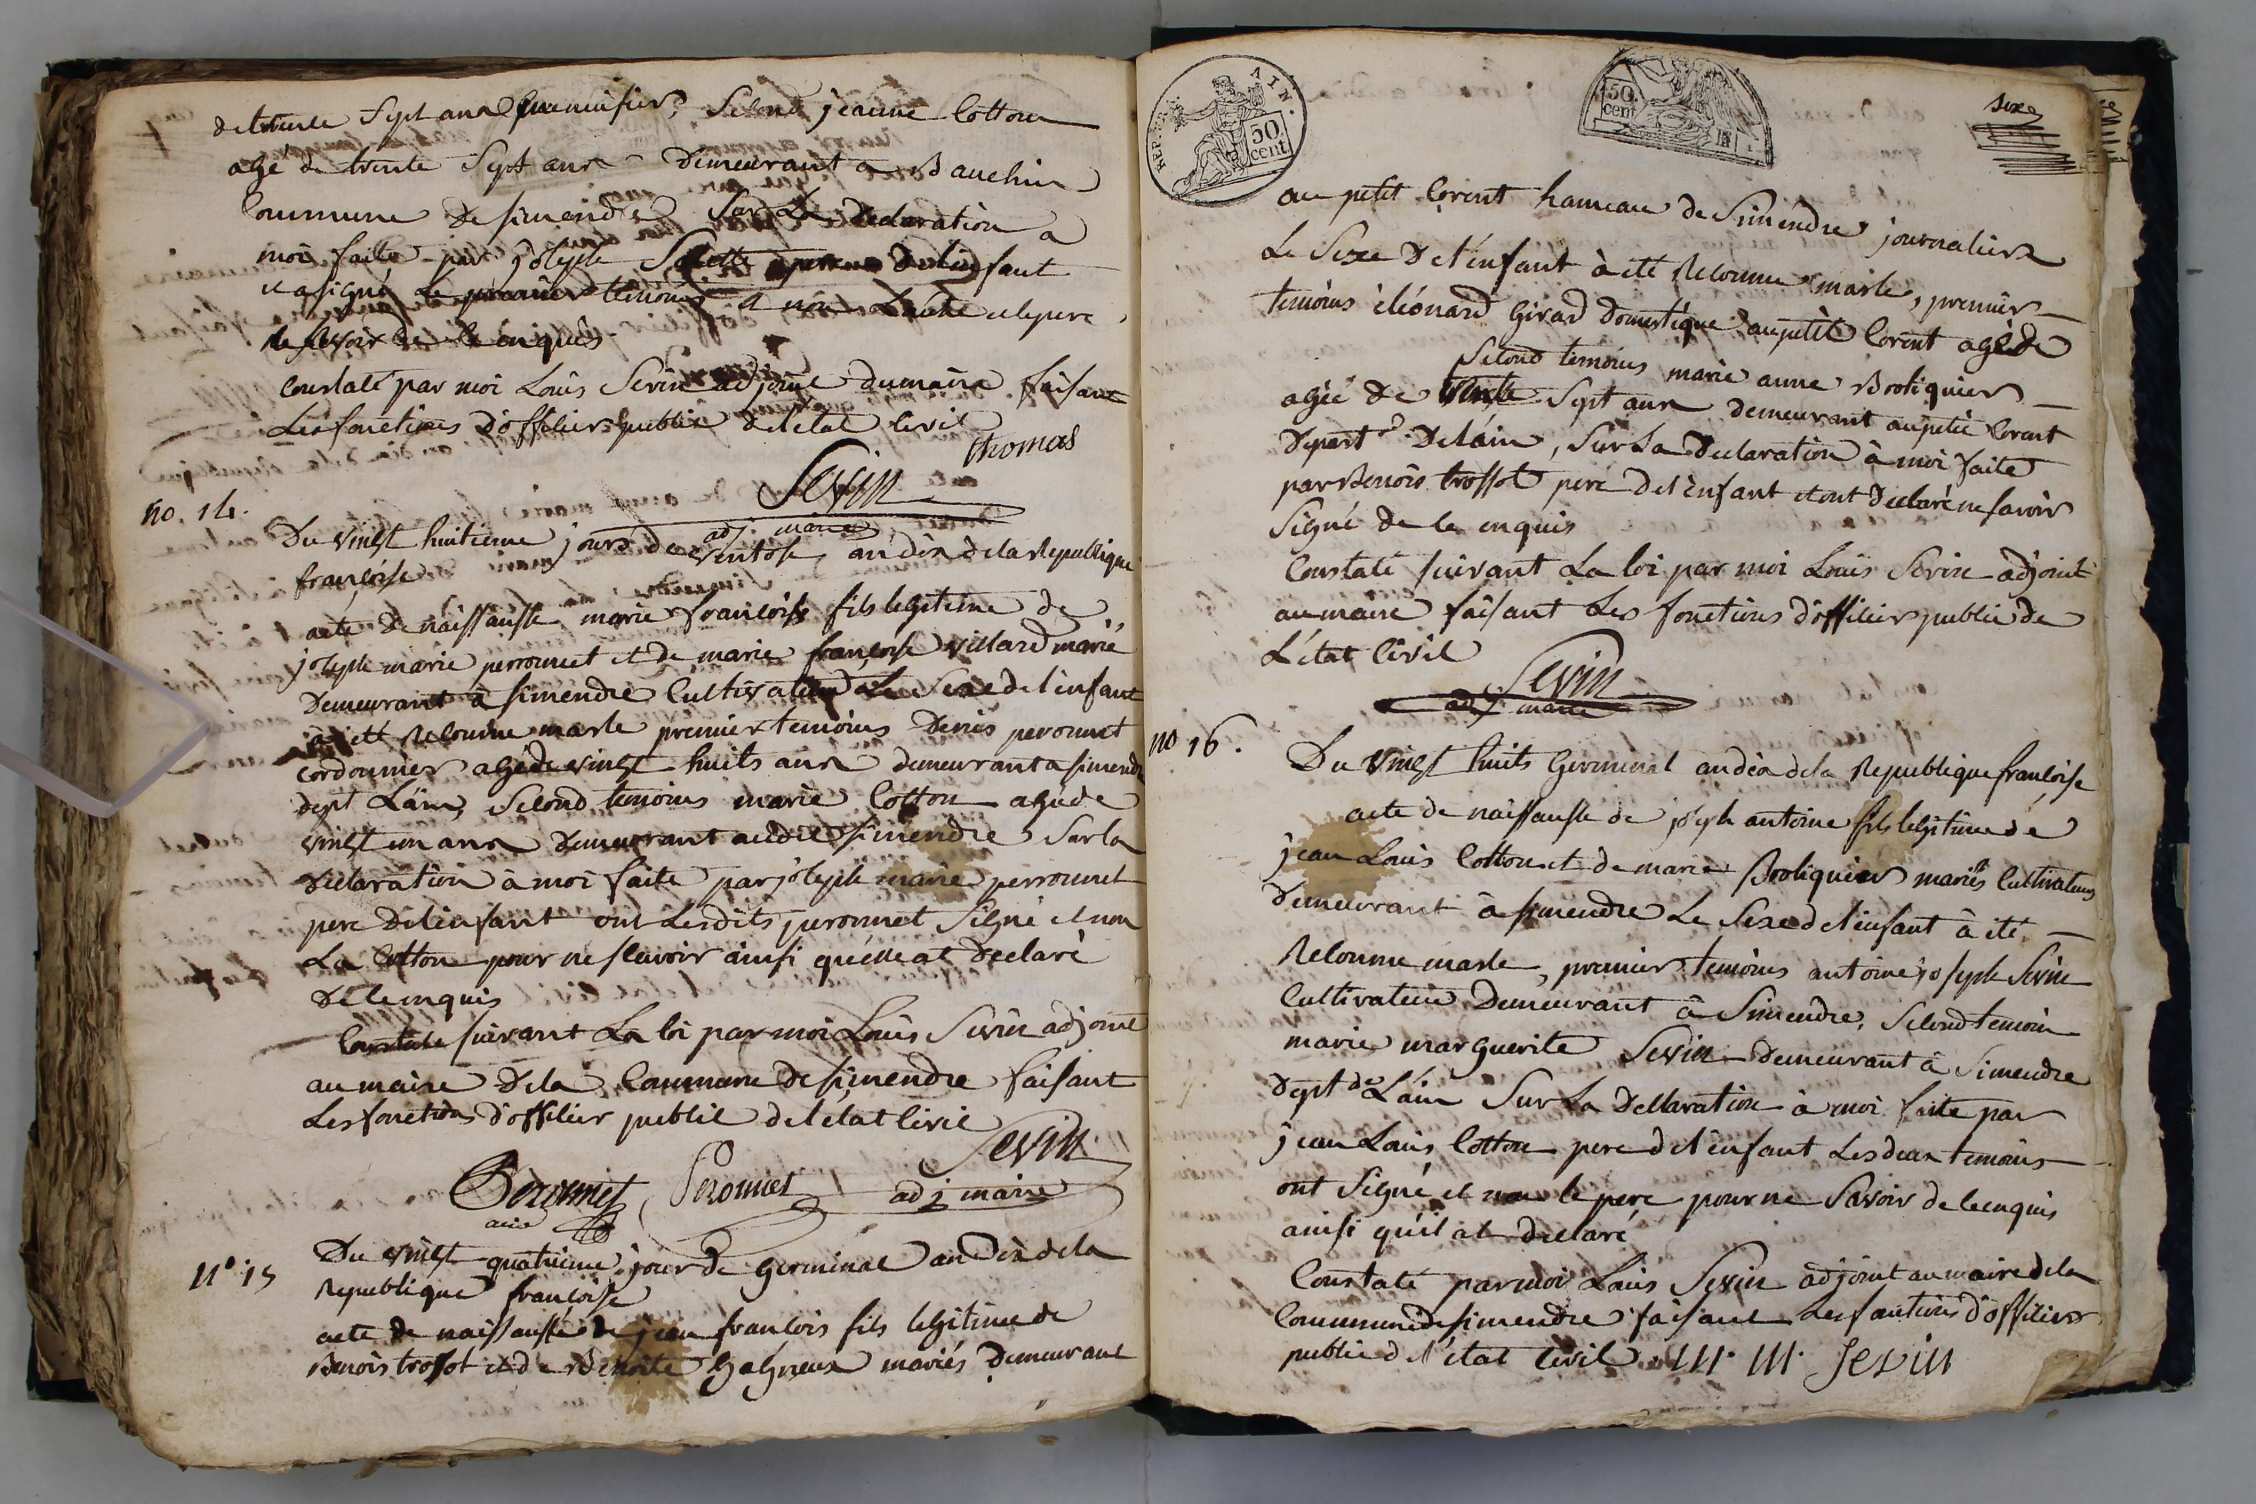 de trente Sept ans Second jeanne Cotton
agé de trente Sept ans demeurant a Bauchin
Commune de simendre Sur La Declaration a
moi faite par joseph De l'enfant
il a signé Le premier temoins a non L'autre et le pere
de ce enquis
Constaté par moi Louis Sevin adjoint du maire faisant
Les fonctions d'officier public de letat Civil
thomas
Sevin
adj. maire
no. 14.
Du vingt huitieme jours de ventose, an dix de la Republique
françoise
acte de naissansse marie françois fils legitime de
joseph marie perronnet et de marie françoise villard marié
Demeurant à simendre Cultivateur Le Sexe de l'enfant
a été Reconnu masle premier temoins Denis peronnet
cordonnier agé de vingt huits ans demeurant a simendre
dept Lain, Second temoins marie Cotton agé de
vingt un ans Demeurant audit simendre Sur la
declaration à moi faite par joseph marie perronnet
pere De l'enfant ont Lesdits peronnet Signé et non
La Cotton pour ne scavoir ainsi qu'elle at declaré
De ce enquis
Constaté suivant La loi par moi Louis Sevin adjoint
au maire de la Commune de simendre faisant
Les fonctions d'officier public de l'etat Civil
Sevin
Peronnet Peronnet adj maire
N° 15
Du vingt quatrieme jour de Germinal an dix de la
Republique françoise
acte de naissansse de jean francois fils legitime de
Benois trossot et de Benoite Gagneux mariés Demeurant
REP. AIN.
50 cent
50 cent
Sixe
au petit Corent hameau de Simendre journaliers
Le Sexe De l'enfant à été Reconnu masle, premier
temoins éléonard Girard Domestique au petit Corent agé de
Second temoins marie anne Broliquier
agée de Sept ans demeurant au petit Corent
Depart.t De l'ain, Sur La Declaration à moi faite
par Benois trossot peré de l'enfant et ont Declaré ne savoir
Signé de ce enquis
Constaté suivant La loi par moi Louis Sevin adjoint
au maire faisant Les fonctions d'officier public de
L'état Civil
Sevin
adj. maire
no 16.
Du vingt huits Germinal an dix de la Republique françoise
acte de naissansse de joseph antoine fils legitime de
jean Louis Cotton et de marie Broliquier mariés Cultivateurs
Demeurant à simendre Le Sexe de l'enfant à été
Reconnu masle, premier temoins antoine joseph Sevin
Cultivateur Demeurant à Simendre, Second temoin
marie marguerite Sevin Demeurant à Simendre
Dept de L'ain Sur La Declaration à moi faite par
jean Louis Cotton pere de l'enfant Les deux temoins
ont Signé et non le pere pour ne Savoir de ce enquis
ainsi qu'il at declaré
Constaté par moi Louis Sevin adjoint au maire de la
Commune de simendre faisant Les fontions d'officier
public de l'état Civil. Sevin